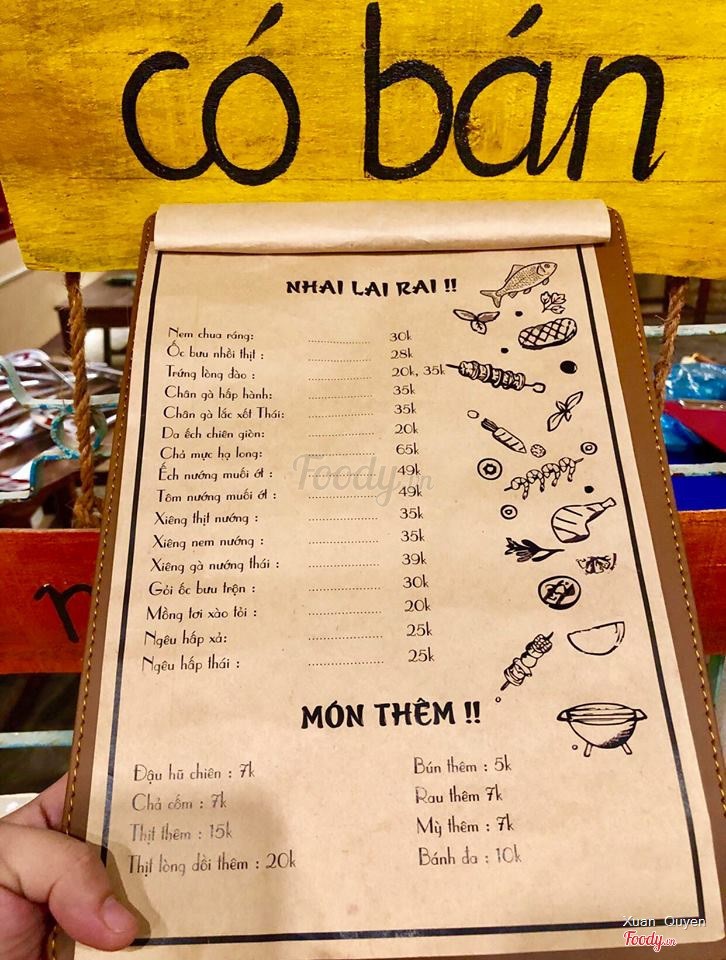 có bán
NHAI LAI RAI !!
Nem chua ráng: 30k
Ốc bưu nhồi thịt : 28k
Trứng lòng đào : 20k, 35k
Chân gà hấp hành: 35k
Chân gà lắc xốt Thái: 35k
Da ếch chiên giòn: 20k
Chả mực hạ long: 65k
Ếch nướng muối ớt : 49k
Tôm nướng muối ớt : 49k
Xiêng thịt nướng : 35k
Xiêng nem nướng : 35k
Xiêng gà nướng thái : 39k
Gỏi ốc bưu trộn : 30k
Mồng tơi xào tỏi : 20k
Ngêu hấp xả: 25k
Ngêu hấp thái : 25k
Foody.vn
MÓN THÊM !!
Đậu hũ chiên : 7k
Chả cốm : 7k
Thịt thêm : 15k
Thịt lòng dồi thêm : 20k
Bún thêm : 5k
Rau thêm 7k
Mỳ thêm : 7k
Bánh đa : 10k
Xuan Quyen
Foody.vn